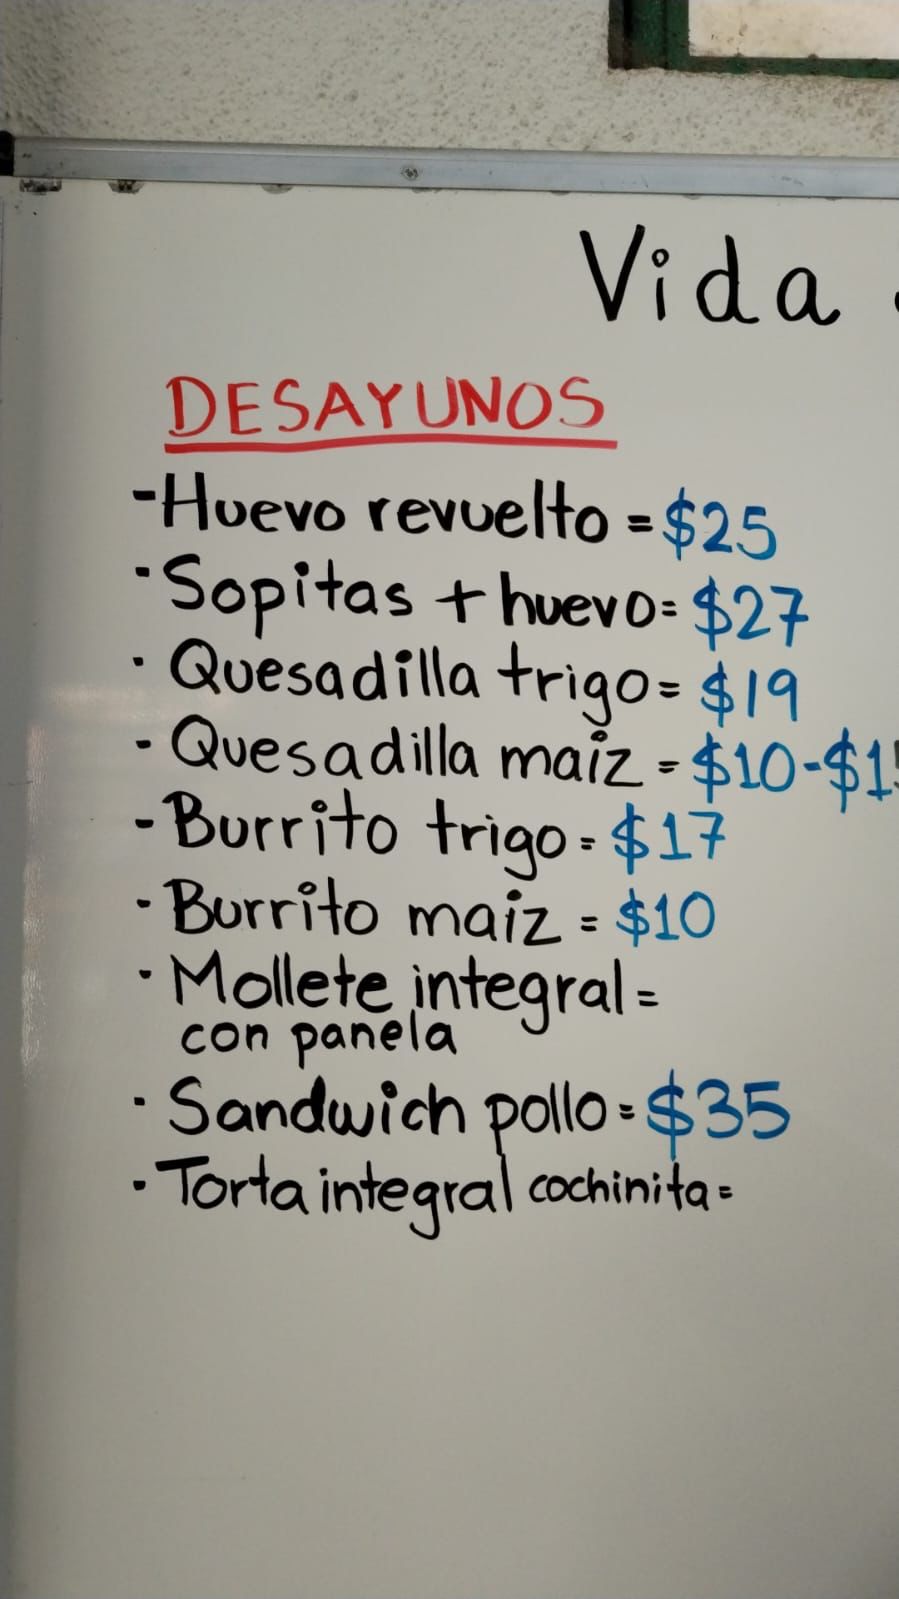 Vida
DESAYUNOS
-Huevo revuelto = $25
·Sopitas + huevo= $27
· Quesadilla trigo= $19
- Quesadilla maiz = $10-$15
- Burrito trigo= $17
- Burrito maiz = $10
· Mollete integral =
con panela
· Sandwich pollo= $35
· Torta integral cochinita=